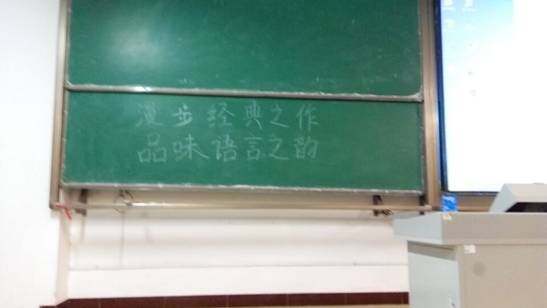 漫步经典之作
品味语言之韵